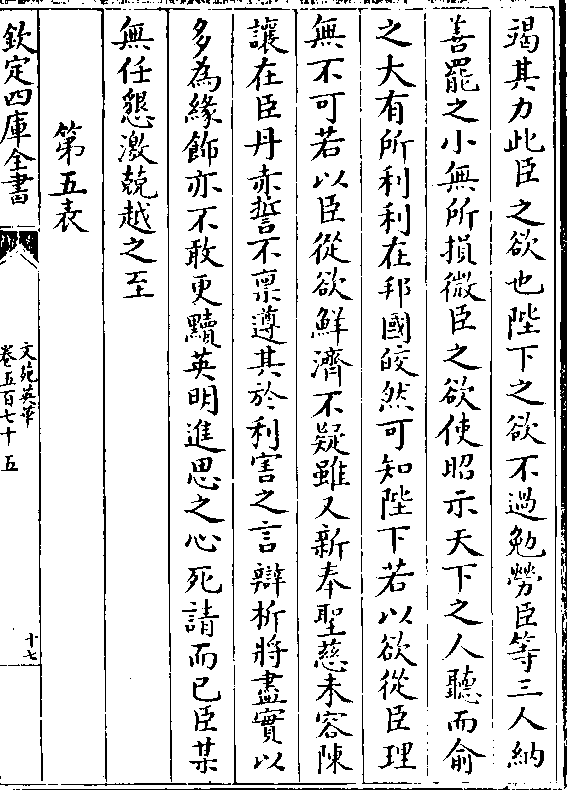 竭其力此臣之欲也陛下之欲不過勉勞臣等三人納
善罷之小無所損微臣之欲使昭示天下之人聽而俞
之大有所利利在邦國皎然可知陛下若以欲從臣理
無不可若以臣從欲鮮濟不疑雖又新奉聖慈未容陳
讓在臣丹赤誓不禀遵其於利害之言辯析將盡實以
多為緣飾亦不敢更黷英明進思之心死請而已臣某
無任懇激兢越之至
第五表
欽定四庫全書
文苑英華
卷五百七十五
十七